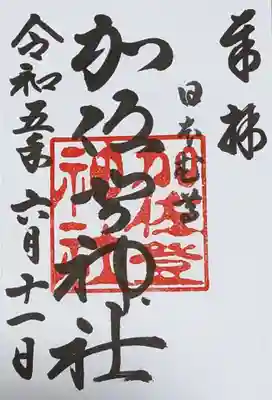 奉拝
日本武尊
加佐登神社
加佐登神社
令和五年六月十一日